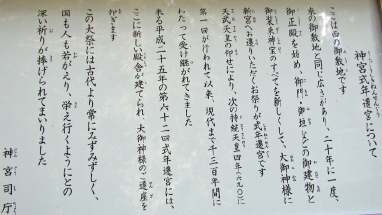 神宮式年遷宮について
ここは西の御敷地です
東の御敷地と同じ広さがあり、二十年に一度、
御正殿を始め、御門・御垣などの御建物と
御装束神宝のすべてを新しくして、大御神様に
新宮へお遷りいただくお祭りが式年遷宮です
天武天皇の御仰せにより、次の持統天皇四年(六九〇)に
第一回が行われて以来、現代まで千三百年間に
わたって受け継がれてきました
来る平成二十五年の第六十二回式年遷宮には、
ここに新しい殿舎が建てられ、大御神様のご遷座を
仰ぎます
この大祭には古代より常にみずみずしく、
国も人も若がえり、栄え行くようにとの
深い祈りが捧げられてまいりました
神宮司庁